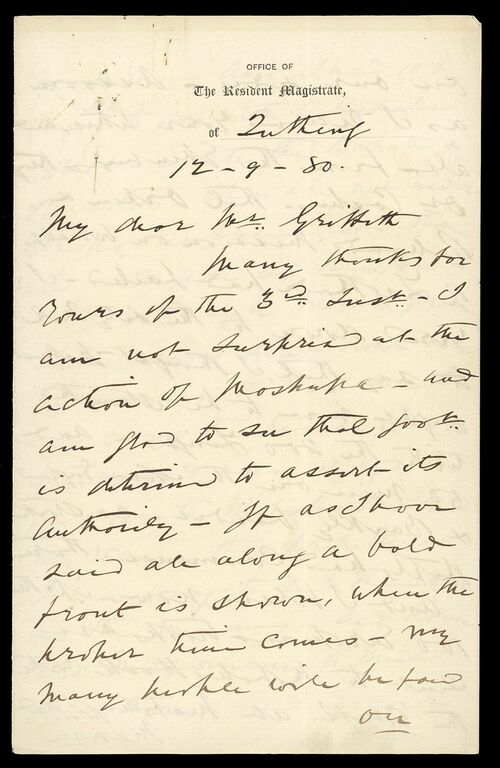 OFFICE OF
The Resident Magistrate,
of Quthing
12 - 9 - 80.
My dear Mr. Griffith
Many thanks for
Yours of the 3rd Inst - I
am not surprised at the
action of Moshupa - and
am glad to see that Govt.
is determined to assert its
Authority - If as I have
said all along a bold
front is shown, when the
proper time comes - my
Many people will be found
on